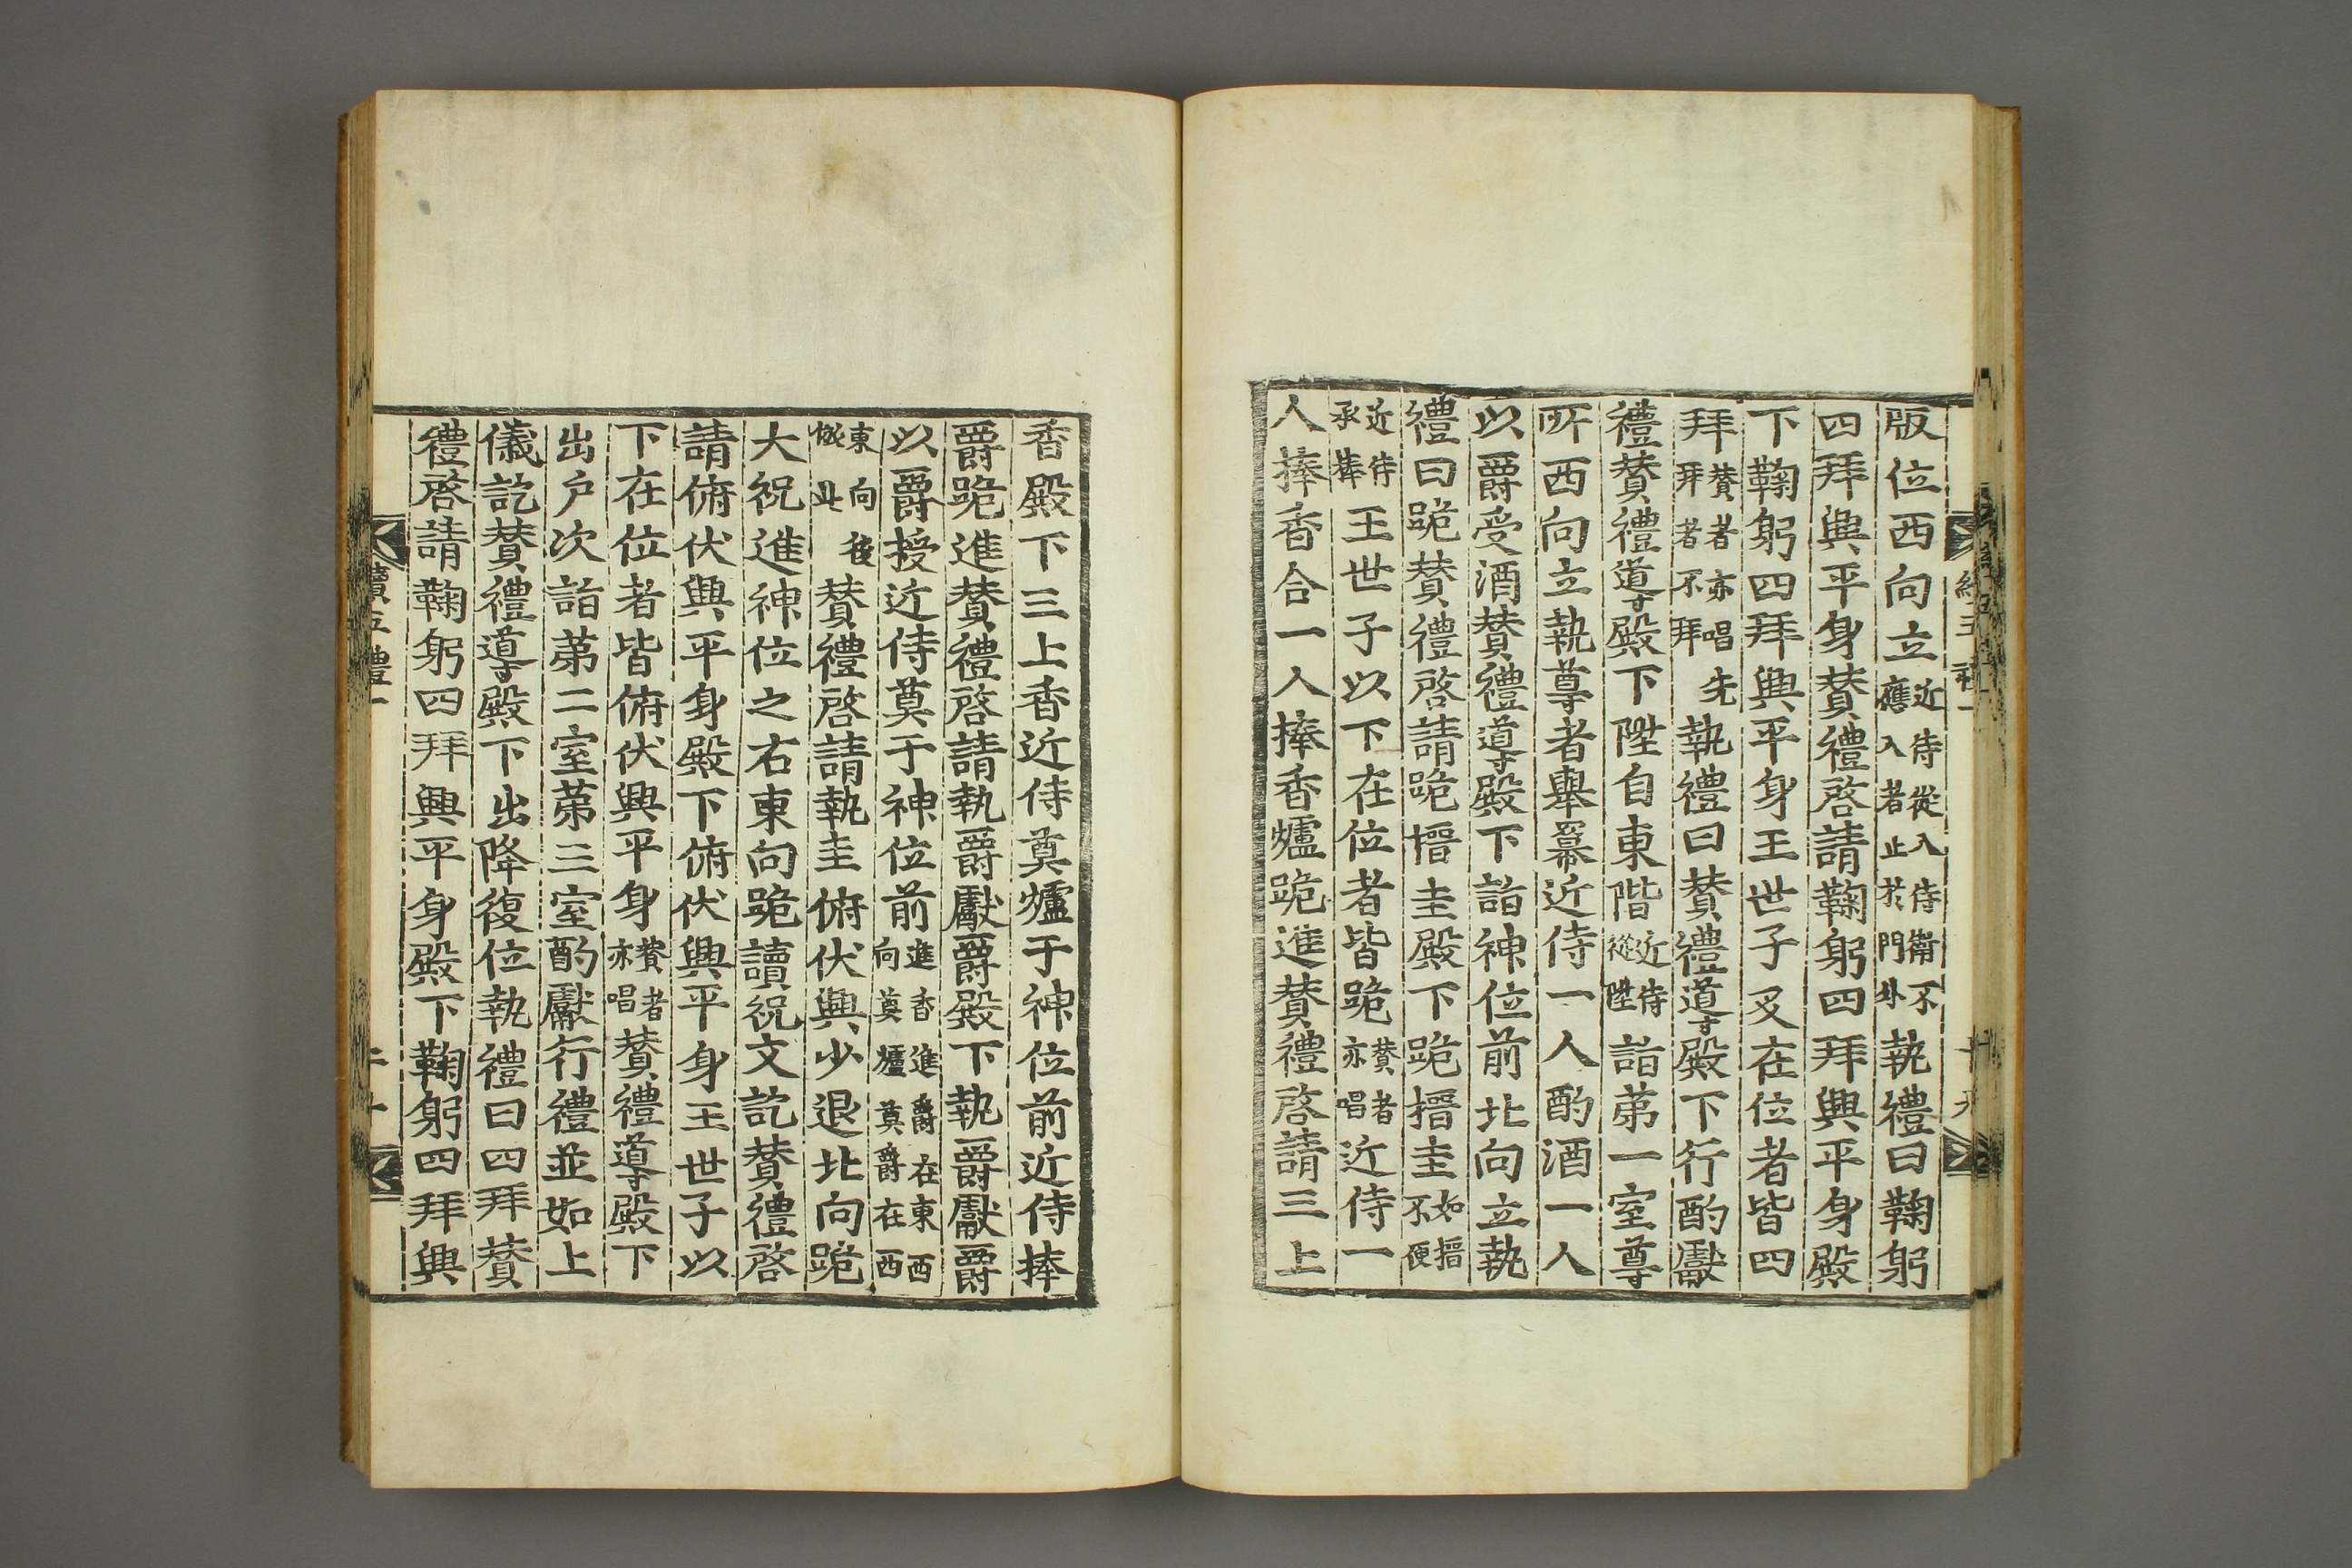 版位西向立近侍從入侍衛不應入者止於門外執禮曰鞠躬
四拜興平身贊禮啓請鞠躬四拜興平身殿
下鞠躬四拜興平身王世子及在位者皆四
拜贊者亦唱先拜者不拜執禮曰贊禮導殿下行酌獻
禮贊禮導殿下陞自東階近侍從陞詣第一室尊
所西向立執尊者舉羃近侍一人酌酒一人
以爵受酒贊禮導殿下詣神位前北向立執
禮曰跪贊禮啓請跪搢圭殿下跪搢圭如搢不便
近侍承捧王世子以下在位者皆跪贊者亦唱近侍一
人捧香合一人捧香爐跪進贊禮啓請三上
香殿下三上香近侍奠爐于神位前近侍捧
爵跪進贊禮啓請執爵獻爵殿下執爵獻爵
以爵授近侍奠于神位前進香進爵在東西向奠爐奠爵在西
東向後倣此贊禮啓請執圭俯伏興少退北向跪
大祝進神位之右東向跪讀祝文訖贊禮啓
請俯伏興平身殿下俯伏興平身王世子以
下在位者皆俯伏興平身贊者亦唱贊禮導殿下
出户次詣第二室第三室酌獻行禮並如上
儀訖贊禮導殿下出降復位執禮曰四拜贊
禮啓請鞠躬四拜興平身殿下鞠躬四拜興
續五禮一
二十